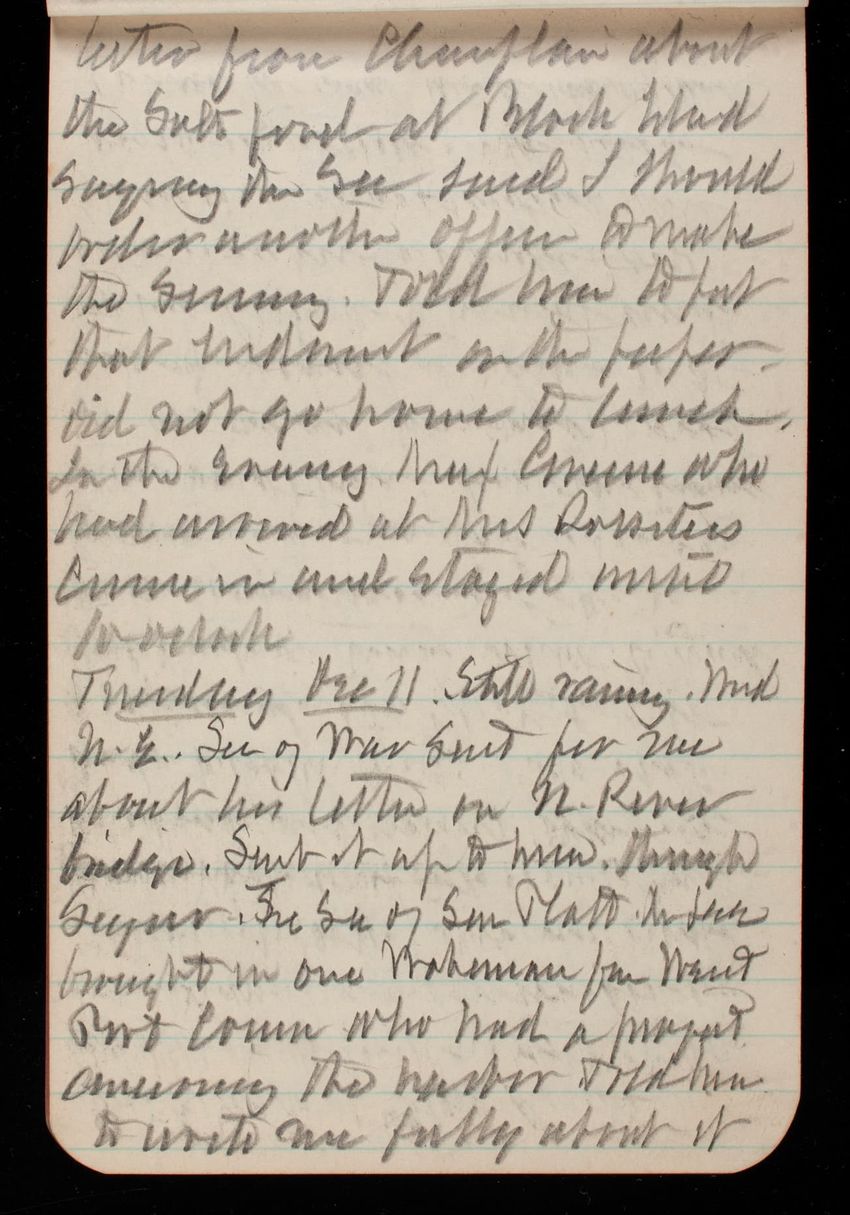 letter from Champlain about
the Salt pond at Block Island
Saying the Sec said I should
order another officer to make
the Survey. Told him to put
that Indorsment on the paper.
did not go home to lunch.
In the Evening Maj Greene who
had arrived at Mrs Rossiters
Came in and Stayed until
10 oclock
Tuesday Dec 11. Still raining. Wind
N.E.. Sec of War Sent for me
about his letter on N. River
bridge. Sent it up to him. through
. The Sec of Sen Platt
brought in one Wakeman from West
Port Conn who had a project
the harbor Told him
to write me fully about it